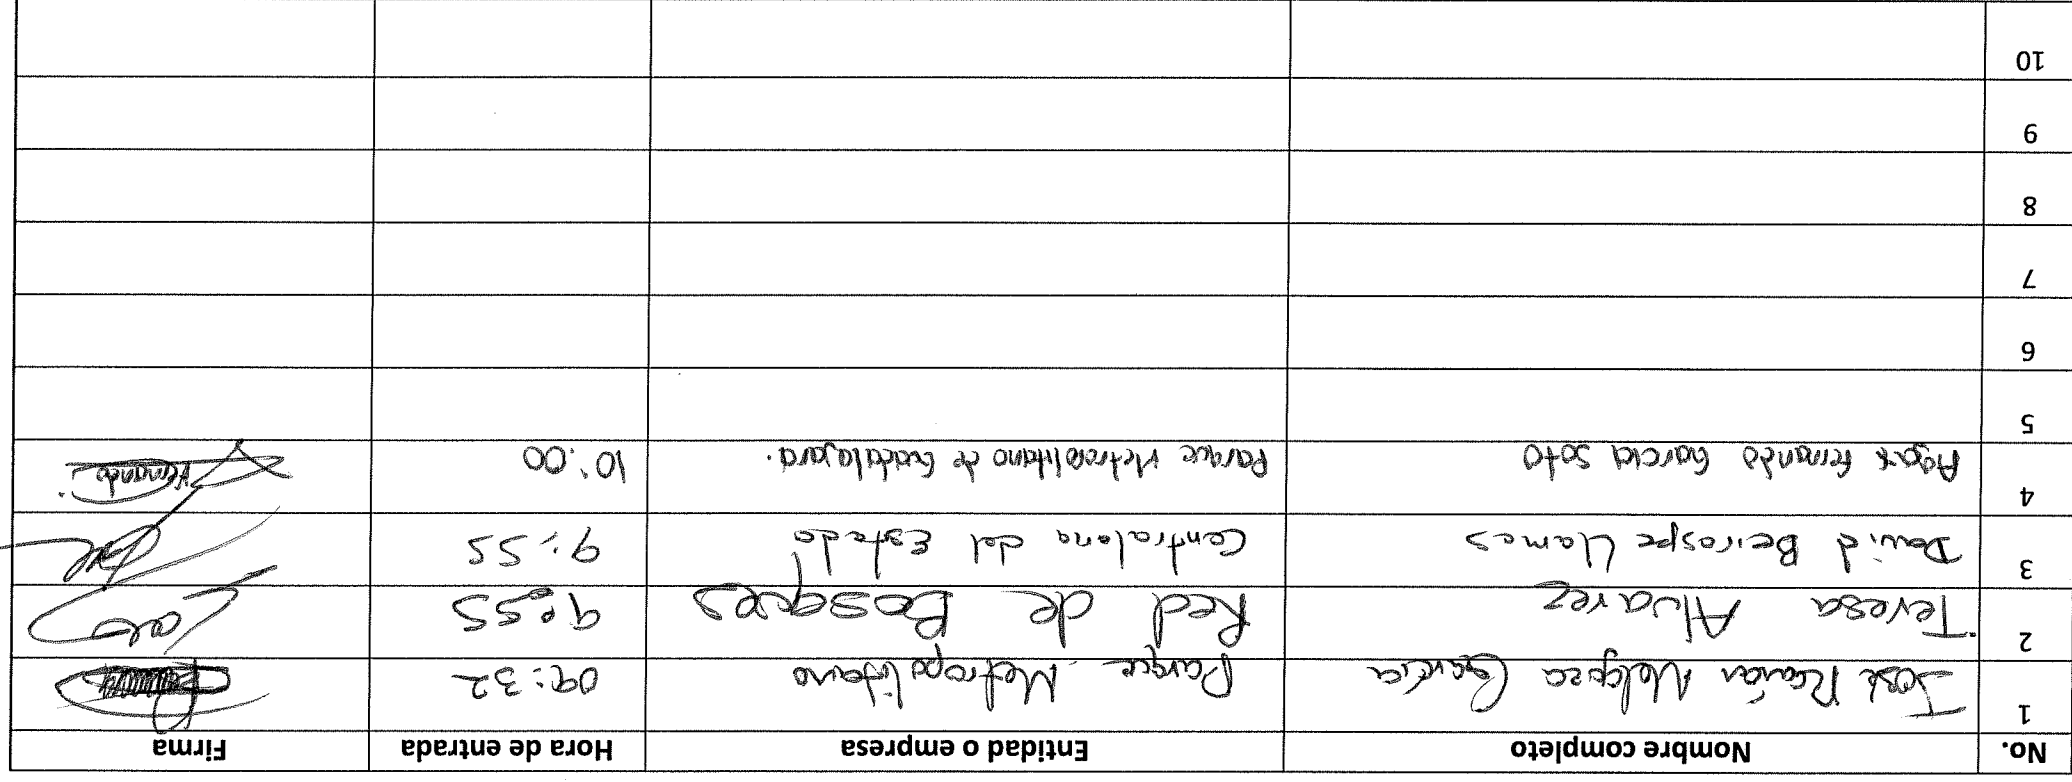 No. Nombre completo Entidad o empresa Hora de entrada Firma
1 José Ramón García Parque Metropolitano 09:32
2 Teresa Alvarez Red de Bosques 9:55
3 David Beirospe Llamas Contraloria del Estado 9:55
4 Fernando García Soto Parque Metropolitano de Guadalajara. 10:00 Fernando
5
6
7
8
9
10